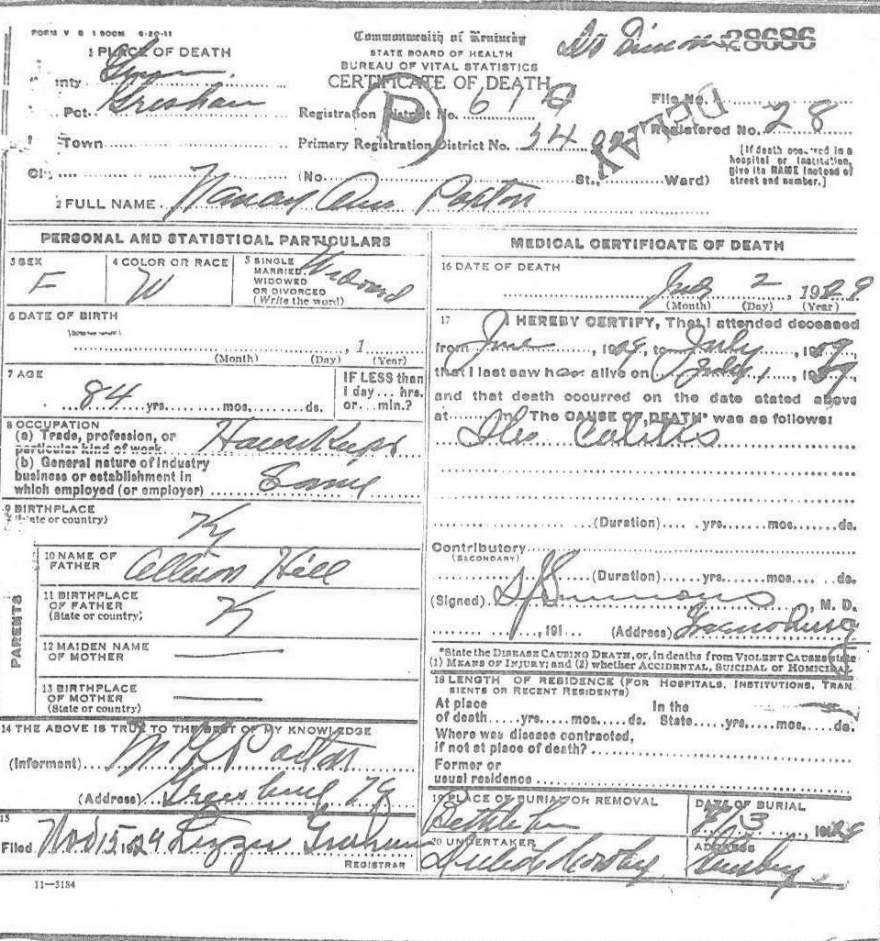 FORM V S 1 500M 6-20-11
Commonwealth of Kentucky
28686
1 PLACE OF DEATH
STATE BOARD OF HEALTH
BUREAU OF VITAL STATISTICS
CERTIFICATE OF DEATH
County Green
Pct. Gresham
Registration District No.
File No.
DELAY
P
Town
Primary Registration District No.
Registered No. 28
(No. St., Ward)
[If death occurred in a hospital or institution, give its NAME instead of street and number.]
2 FULL NAME Nancy Ann Paxton
PERSONAL AND STATISTICAL PARTICULARS
3 SEX F
4 COLOR OR RACE W
5 SINGLE MARRIED, WIDOWED OR DIVORCED (Write the word) Widowed
6 DATE OF BIRTH
, 1
(Month) (Day) (Year)
7 AGE
84 yrs. mos. ds.
IF LESS than 1 day... hrs. or... min.?
8 OCCUPATION
(a) Trade, profession, or particular kind of work Housekeeper
(b) General nature of industry business or establishment in which employed (or employer) Same
9 BIRTHPLACE
(State or country) Ky
PARENTS
10 NAME OF FATHER Hill
11 BIRTHPLACE OF FATHER (State or country) Ky
12 MAIDEN NAME OF MOTHER
13 BIRTHPLACE OF MOTHER (State or country)
14 THE ABOVE IS TRUE TO THE BEST OF MY KNOWLEDGE
(Informant) Paxton
(Address) Greensburg Ky
15
Filed Nov 15, 1929 Lizzie Graham
REGISTRAR
11—3184
MEDICAL CERTIFICATE OF DEATH
16 DATE OF DEATH
July 2, 1929
(Month) (Day) (Year)
17 I HEREBY CERTIFY, That I attended deceased
from June, 1929, to July, 1929,
that I last saw her alive on July 1, 1929,
and that death occurred on the date stated above
at m. The CAUSE OF DEATH* was as follows:
Ileo Colitis
(Duration) yrs. mos. ds.
Contributory
(SECONDARY)
(Duration) yrs. mos. ds.
(Signed) Simmons, M. D.
, 191 (Address) Greensburg
*State the DISEASE CAUSING DEATH, or, in deaths from VIOLENT CAUSES state
(1) MEANS OF INJURY; and (2) whether ACCIDENTAL, SUICIDAL or HOMICIDAL
18 LENGTH OF RESIDENCE (FOR HOSPITALS, INSTITUTIONS, TRAN
SIENTS OR RECENT RESIDENTS)
At place of death yrs. mos. ds. In the State yrs. mos. ds.
Where was disease contracted,
if not at place of death?
Former or
usual residence
19 PLACE OF BURIAL OR REMOVAL
DATE OF BURIAL
, 1929
20 UNDERTAKER
ADDRESS